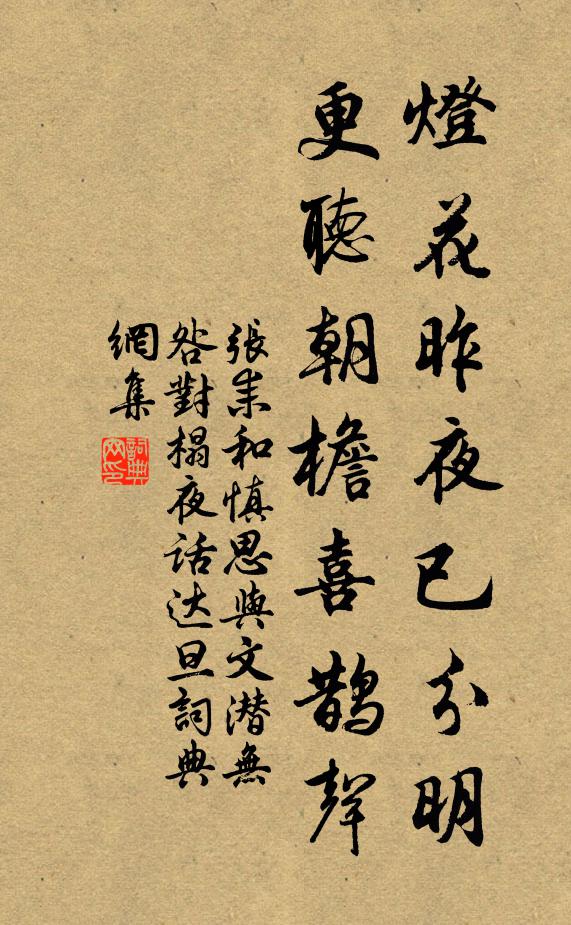 燈花昨夜已分明
更聽朝檐喜鵲聲
張耒和慎思與文潜無
咎對榻夜話达旦詞典
網集
詞典
网印